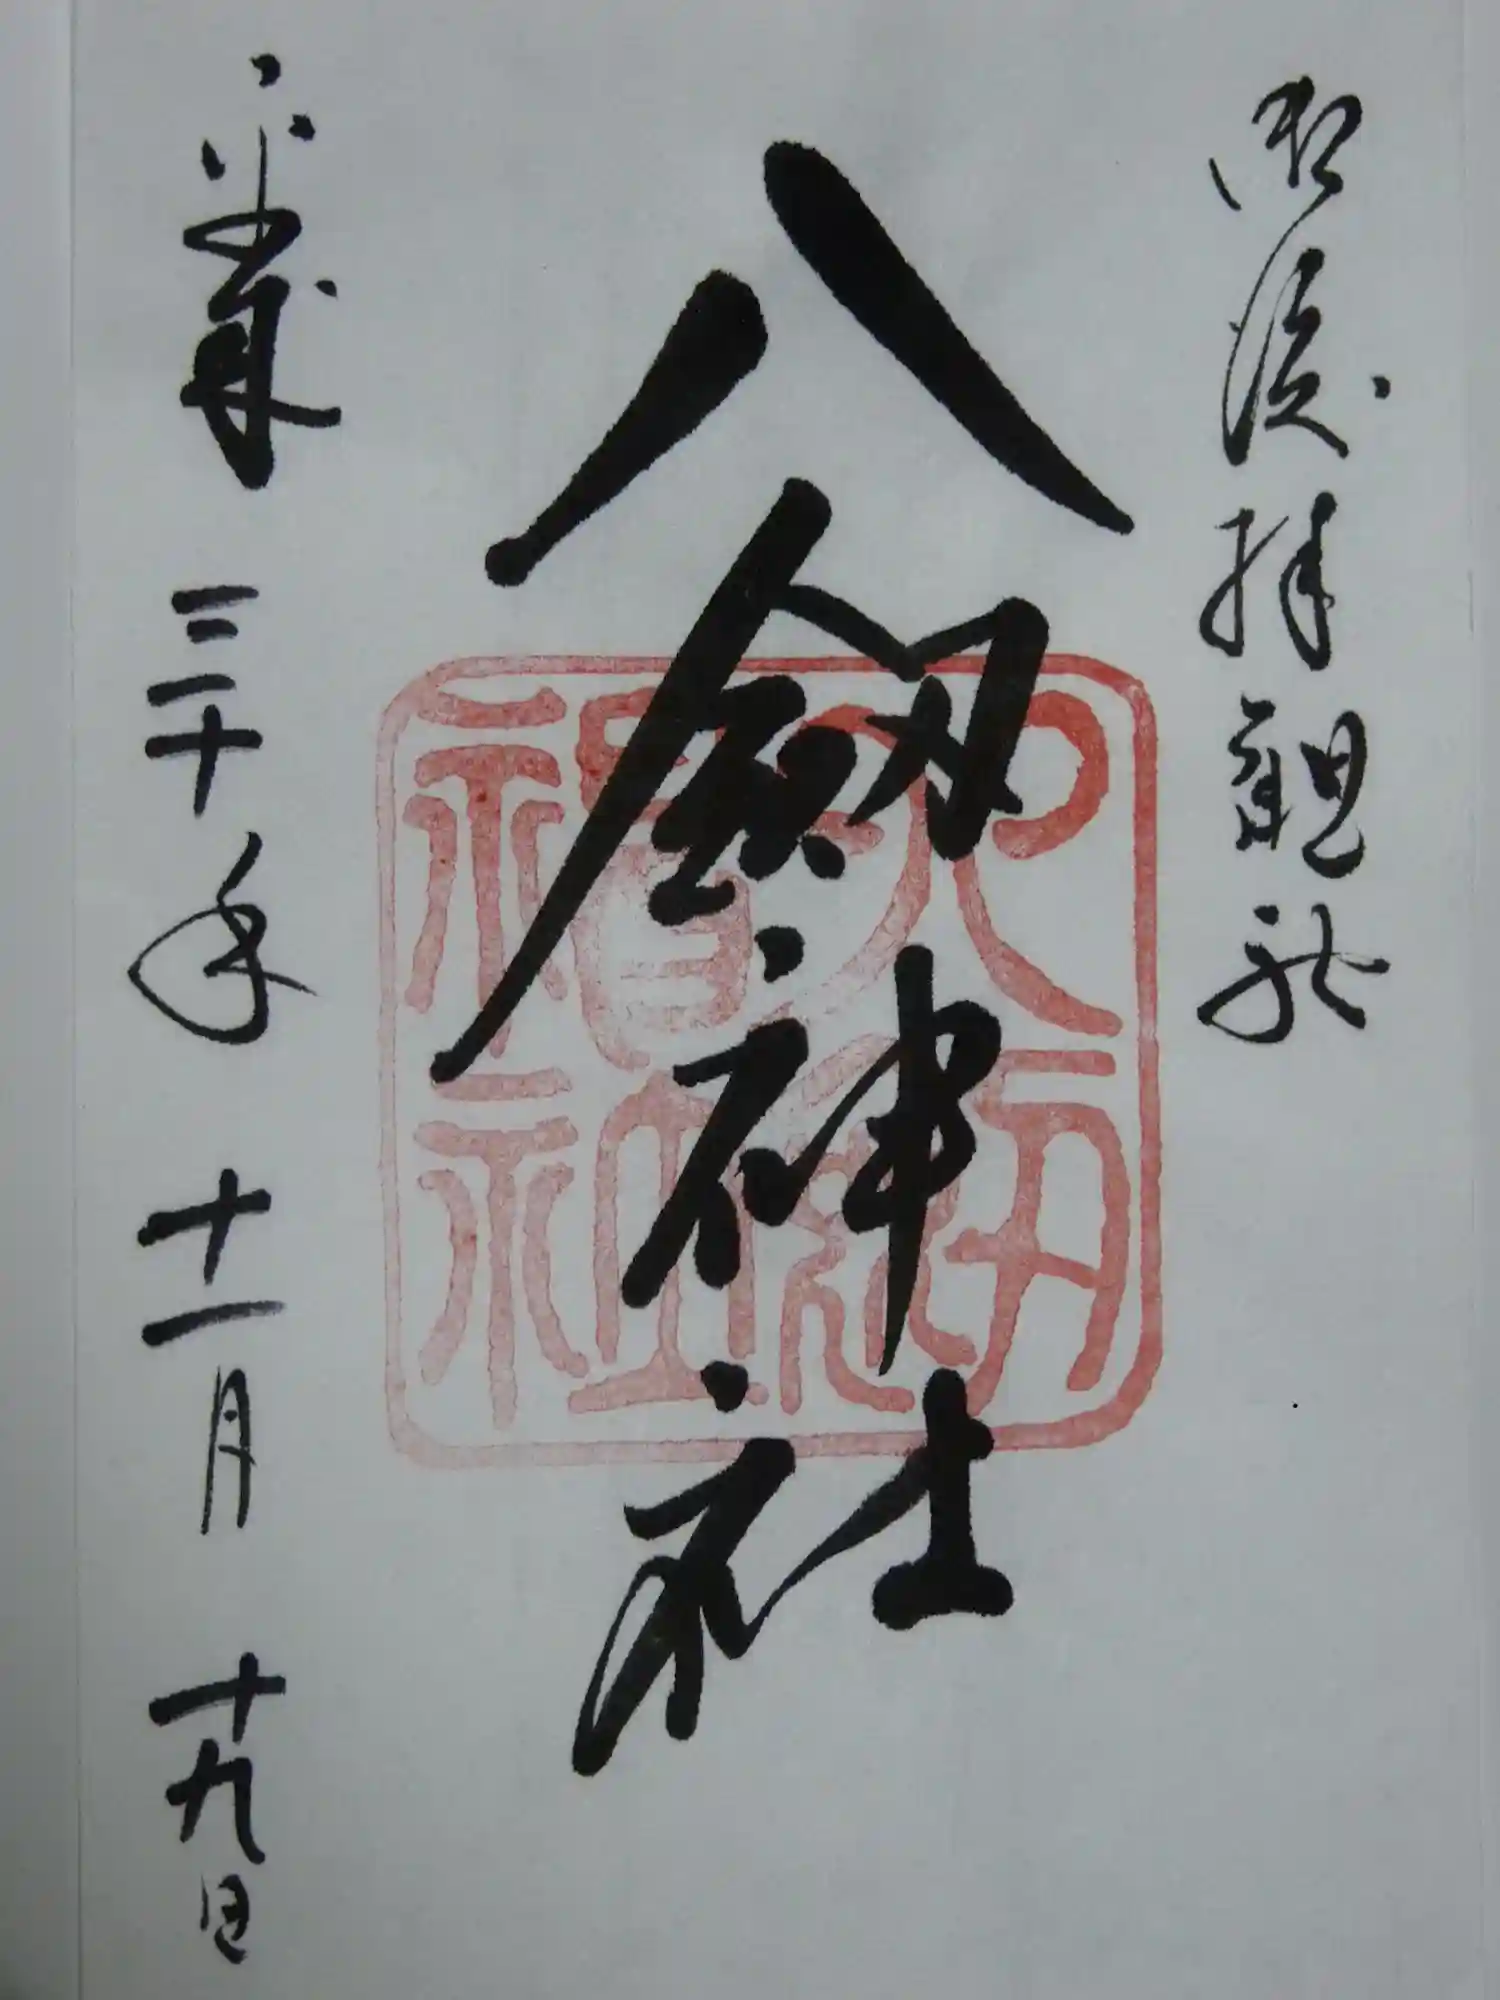 御渡拝観
八剱神社
平成三十年十一月十九日
八剱神社